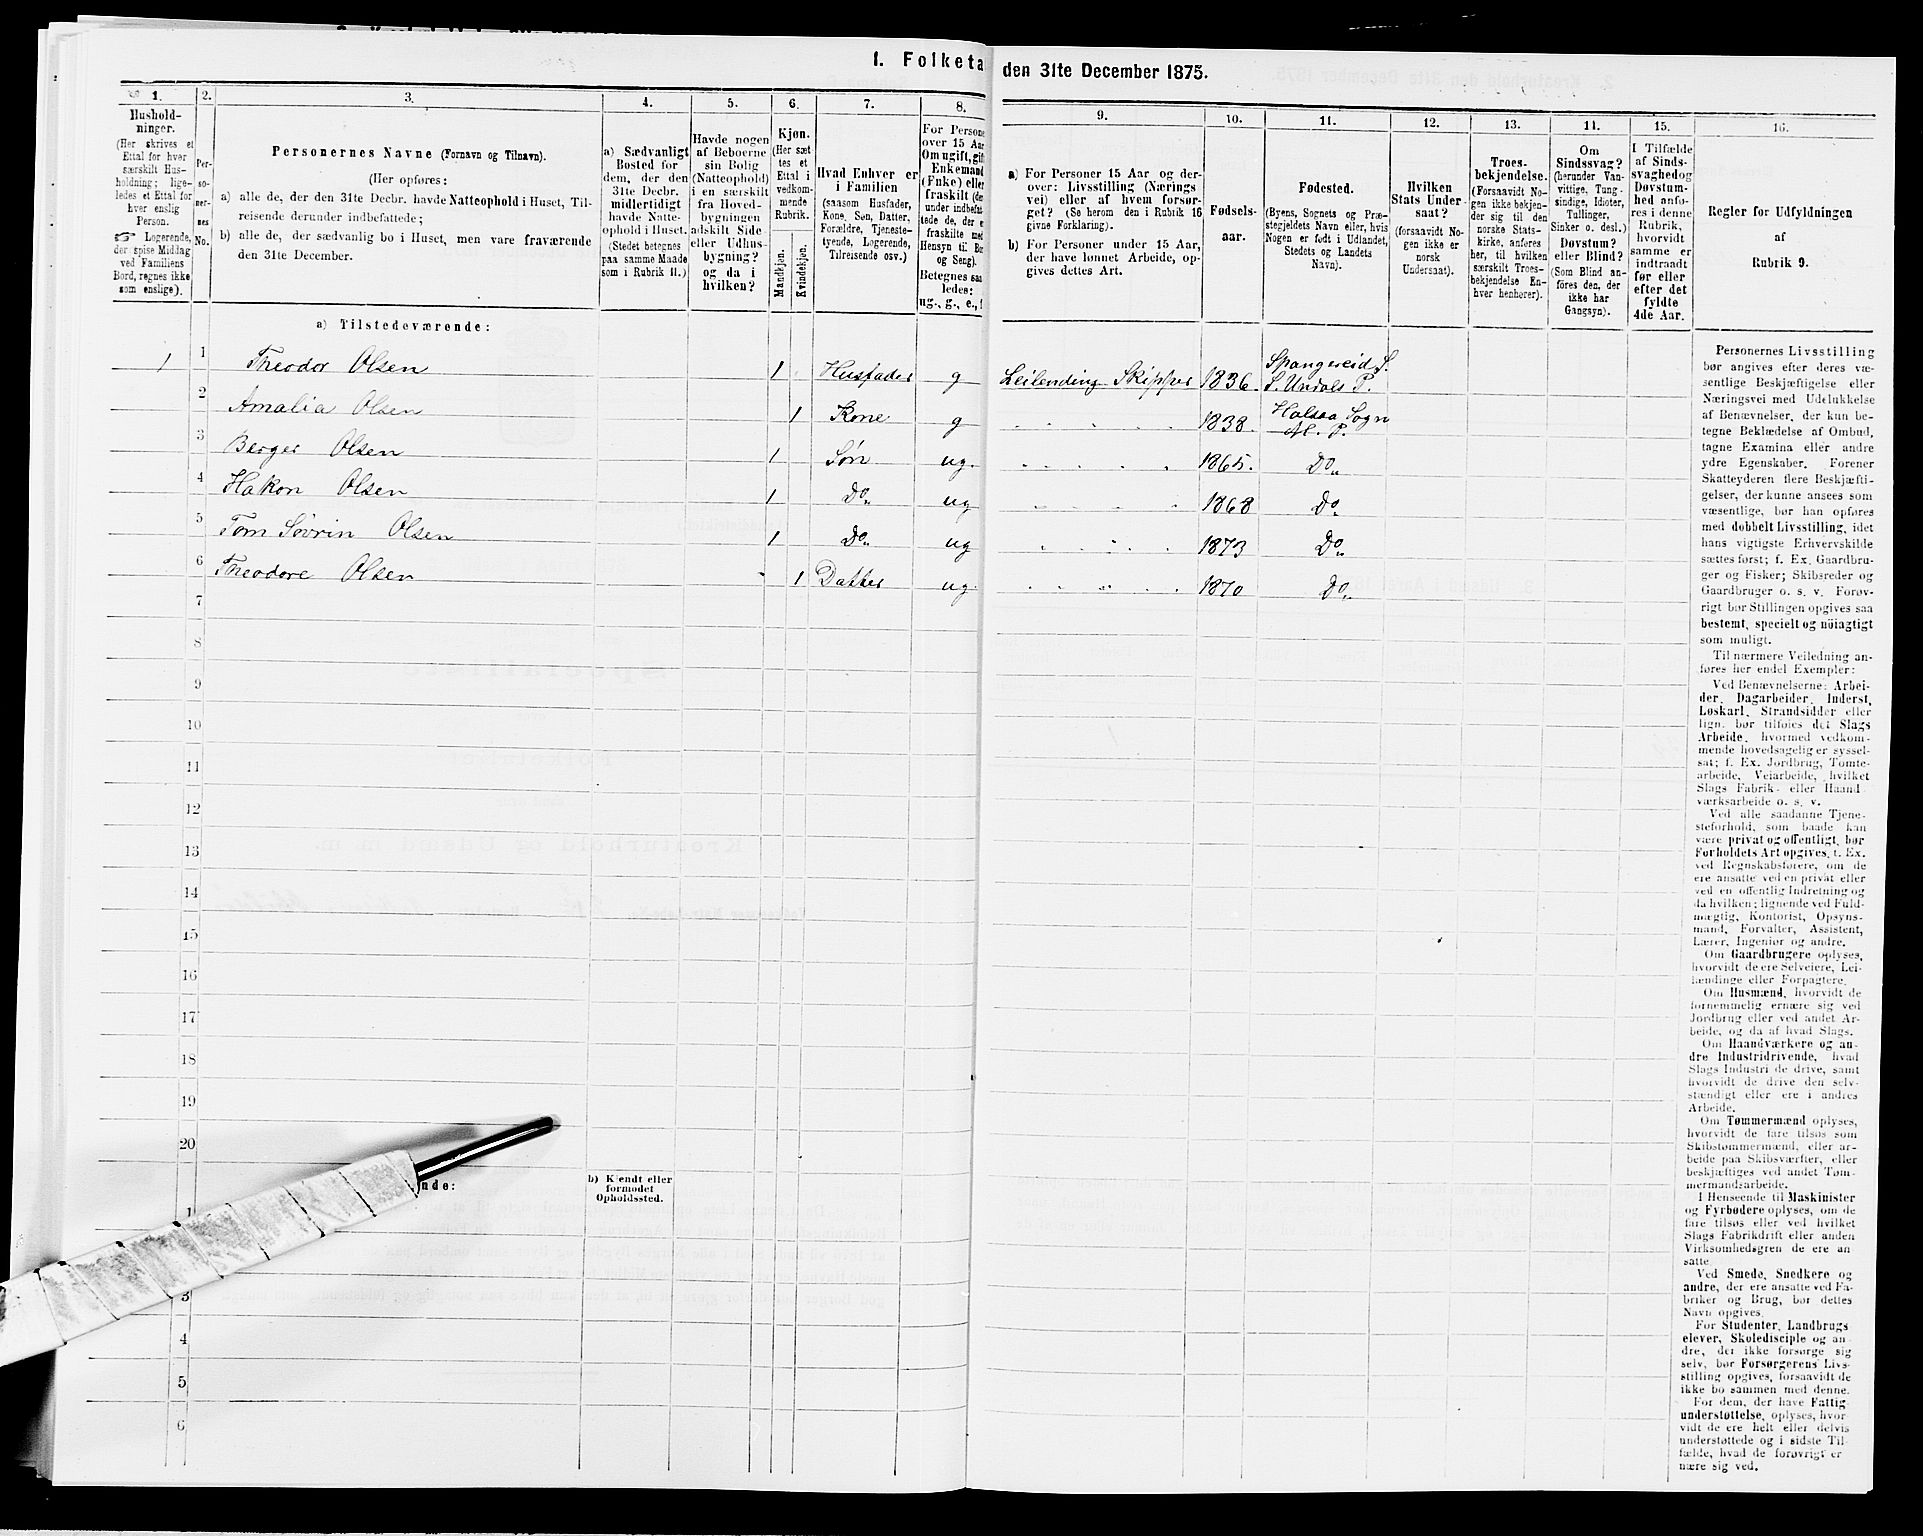 1. Folketa
den 31te December 1875.
1.
2.
3.
4.
5.
6.
7.
8.
9.
10.
11.
12.
13.
14.
15.
16.
Hushold-
ninger.
(Her skrives et
Ettal for hver
særskilt Hus-
holdning; lige-
ledes et Ettal for
hver enslig
Person.
☞ Logerende,
der spise Middag
ved Familiens
Bord, regnes ikke
som enslige).
Per-
so-
ner-
nes
No.
Personernes Navne (Fornavn og Tilnavn).
(Her opføres:
a) alle de, der den 31te Decbr. havde Natteophold i Huset, Til-
reisende derunder indbefattede;
b) alle de, der sædvanlig bo i Huset, men vare fraværende
den 31te December.
a) Sædvanligt
Bosted for
dem, der den
31te Decbr.
midlertidigt
havde Natte-
ophold i Huset.
(Stedet betegnes
paa samme Maade
som i Rubrik 11.)
Havde nogen
af Beboerne
sin Bolig
(Natteophold)
i en særskilt
fra Hoved-
bygningen
adskilt Side
eller Udhus-
bygning?
og da i
hvilken?
Kjøn.
(Her sæt
tes et
Ettal i
vedkom-
mende
Rubrik.
Mandkjøn.
Kvindekjøn.
Hvad Enhver er
i Familien
(saasom Husfader,
Kone, Søn, Datter,
Forældre, Tjeneste-
tyende, Logerende,
Tilreisende osv.)
For Persone
over 15 Aar
Om ugift, gift
Enkemand
(Enke) eller
fraskilt (der
under indbefat
tede de, der e
fraskilte med
Hensyn til Bo
og Seng).
Betegnes saa
ledes:
ug., g., e., f
a) For Personer 15 Aar og der-
over: Livsstilling (Nærings
vei) eller af hvem forsør-
get? (Se herom den i Rubrik 16
givne Forklaring).
b) For Personer under 15 Aar,
der have lønnet Arbeide, op-
gives dettes Art.
Fødsels-
aar.
Fødested.
(Byens, Sognets og Præ-
stegjeldets Navn eller, hvis
Nogen er født i Udlandet,
Stedets og Landets
Navn).
Hvilken
Stats Under-
saat?
(forsaavidt No-
gen ikke er
norsk
Undersaat).
Troes-
bekjendelse.
(Forsaavidt No-
gen ikke bekjen-
der sig til den
norske Stats-
kirke, anføres
her, til hvilken
særskilt Troes-
bekjendelse En-
hver henhører).
Om
Sindssvag?
(herunder Van-
vittige, Tung-
sindige, Idioter,
Tullinger,
Sinker o. desl.)
Døvstum?
eller Blind?
(Som Blind an-
føres den, der
ikke har
Gangsyn).
I Tilfælde
af Sinds-
svaghed og
Døvstum-
hed anfø-
res i denne
Rubrik,
hvorvidt
samme er
indtraadt
før eller
efter det
fyldte
4de Aar.
Regler for Udfyldningen
af
Rubrik 9.
a) Tilstedeværende:
1 1 Theodor Olsen 1 Husfader g Leilending Skipper 1836. Spangereid S.
S. Undals P.
2 Amalia Olsen 1 Kone g 1838. Halsaa Sogn
M. P.
3 Berger Olsen 1 Søn ug. 1865. Do
4 Hakon Olsen 1 Do ug 1868 Do
5 Tom Søvrin Olsen 1 Do ug 1873 Do
6 Theodore Olsen 1 Datter ug. 1870 Do
7
8
9
10
11
12
13
14
15
16
17
18
19
20
nde:
b) Kjendt eller
formodet
Opholdssted.
1
3
4
5
6
Personernes Livsstilling
bør angives efter deres væ-
sentlige Beskjæftigelse eller
Næringsvei med Udelukkelse
af Benævnelser, der kun be-
tegne Beklædelse af Ombud,
tagne Examina eller andre
ydre Egenskaber. Forener
Skatteyderen flere Beskjæfti-
gelser, der kunne ansees som
væsentlige, bør han opføres
med dobbelt Livsstilling, idet
hans vigtigste Erhvervskilde
sættes først; f. Ex. Gaardbru-
ger og Fisker; Skibsreder og
Gaardbruger o. s. v. Forøv-
rigt bør Stillingen opgives saa
bestemt, specielt og nöiagtigt
som muligt.
Til nærmere Veiledning an-
føres her endel Exempler:
Ved Benævnelserne: Arbei-
der, Dagarbeider, Inderst,
Løskarl, Strandsidder eller
lign. bør tilføies det Slags
Arbeide, hvormed vedkom-
mende hovedsagelig er syssel-
sat; f. Ex. Jordbrug, Tomte-
arbeide, Veiarbeide, hvilket
Slags Fabrik- eller Haand-
værksarbeide o. s. v.
Ved alle saadanne Tjene-
steforhold, som baade kan
være privat og offentligt, bør
Forholdets Art opgives, f. Ex.
ved Regnskabsførere, om de
ere ansatte ved en privat eller
ved en offentlig Indretning og
da hvilken; lignende ved Fuld-
mægtig, Kontorist, Opsyns-
mand, Forvalter, Assistent,
Lærer, Ingeniør og andre.
Om Gaardbrugere oplyses,
hvorvidt de ere Selveiere, Lei-
lændinge eller Forpagtere.
Om Husmænd, hvorvidt de
fornemmelig ernære sig ved
Jordbrug eller ved andet Ar-
beide, og da af hvad Slags.
Om Haandværkere og an-
dre Industridrivende, hvad
Slags Industri de drive, samt
hvorvidt de drive den selv-
stændigt eller ere i andres
Arbeide.
Om Tømmermænd oplyses,
hvorvidt de fare tilsøs som
Skibstømmermænd, eller ar-
beide paa Skibsværfter, eller
beskjæftiges ved andet Tøm-
mermandsarbeide.
I Henseende til Maskinister
og Fyrbødere oplyses, om de
fare tilsøs eller ved hvilket
Slags Fabrikdrift eller anden
Virksomhedsgren de ere an-
satte.
Ved Smede, Snedkere og
andre, der ere ansatte ved Fa-
briker og Brug, bør dettes
Navn opgives.
For Studenter, Landbrugs
elever, Skoledisciple og an-
dre, der ikke forsørge sig
selv, bør Forsørgerens Livs-
stilling opgives, forsaavidt de
ikke bo sammen med denne.
For dem, der have Fattig-
understøttelse, oplyses, hvor
vidt de ere helt eller delvis
understøttede og i sidste Til-
fælde, hvad de forøvrigt er
nære sig ved.